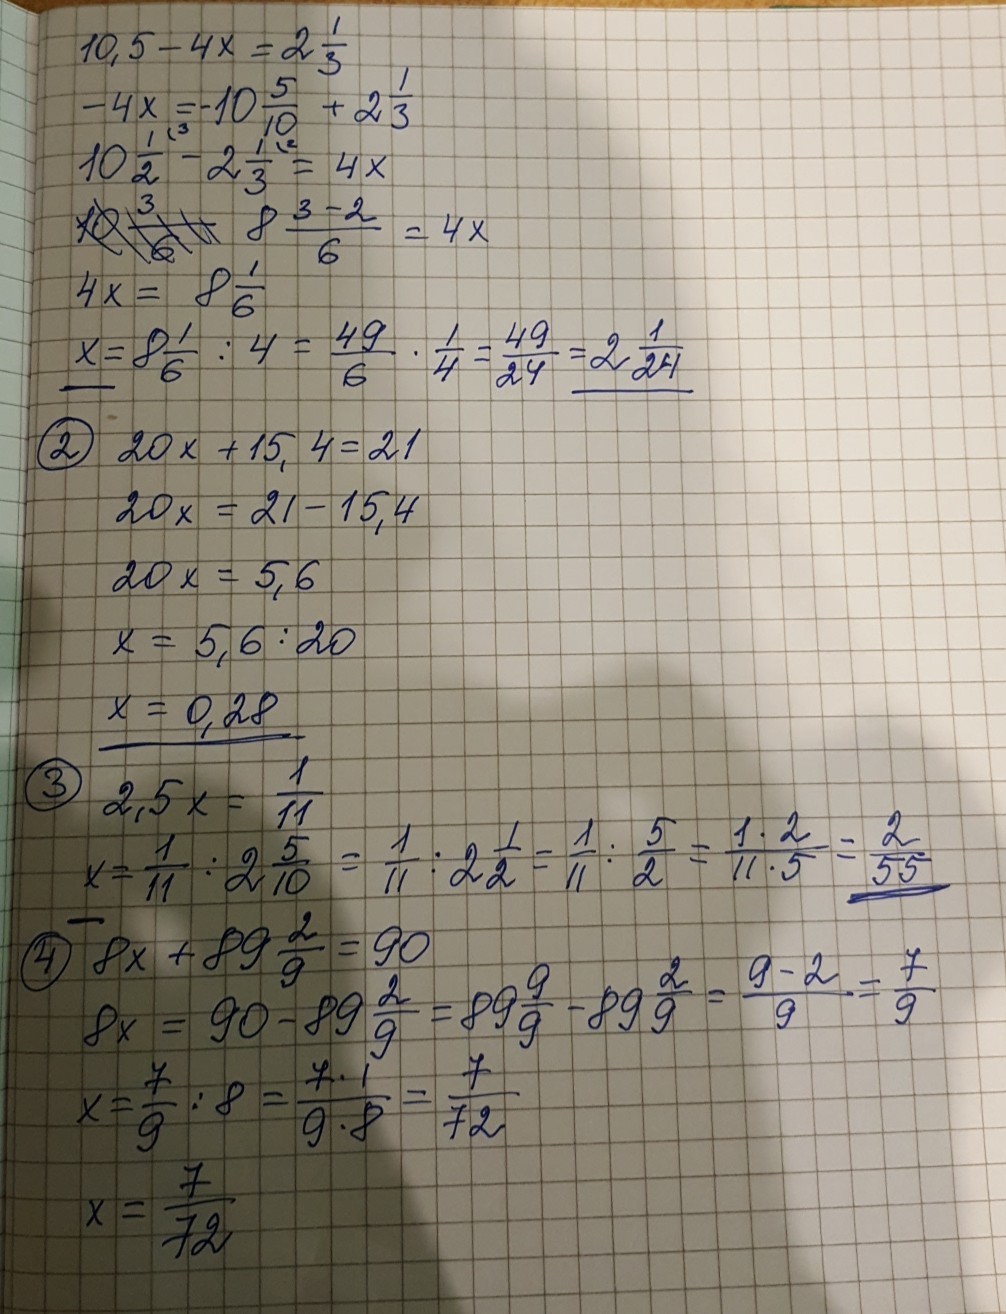 10,5 - 4x = 2 1/3
-4x = -10 5/10 + 2 1/3
10 1/2 ⁽³ - 2 1/3 ⁽² = 4x
8 (3-2)/6 = 4x
4x = 8 1/6
x = 8 1/6 : 4 = 49/6 · 1/4 = 49/24 = 2 1/24
② 20x + 15,4 = 21
20x = 21 - 15,4
20x = 5,6
x = 5,6 : 20
x = 0,28
③ 2,5x = 1/11
x = 1/11 : 2 5/10 = 1/11 : 2 1/2 = 1/11 : 5/2 = (1·2)/(11·5) = 2/55
④ 8x + 89 2/9 = 90
8x = 90 - 89 2/9 = 89 9/9 - 89 2/9 = (9-2)/9 = 7/9
x = 7/9 : 8 = (7·1)/(9·8) = 7/72
x = 7/72